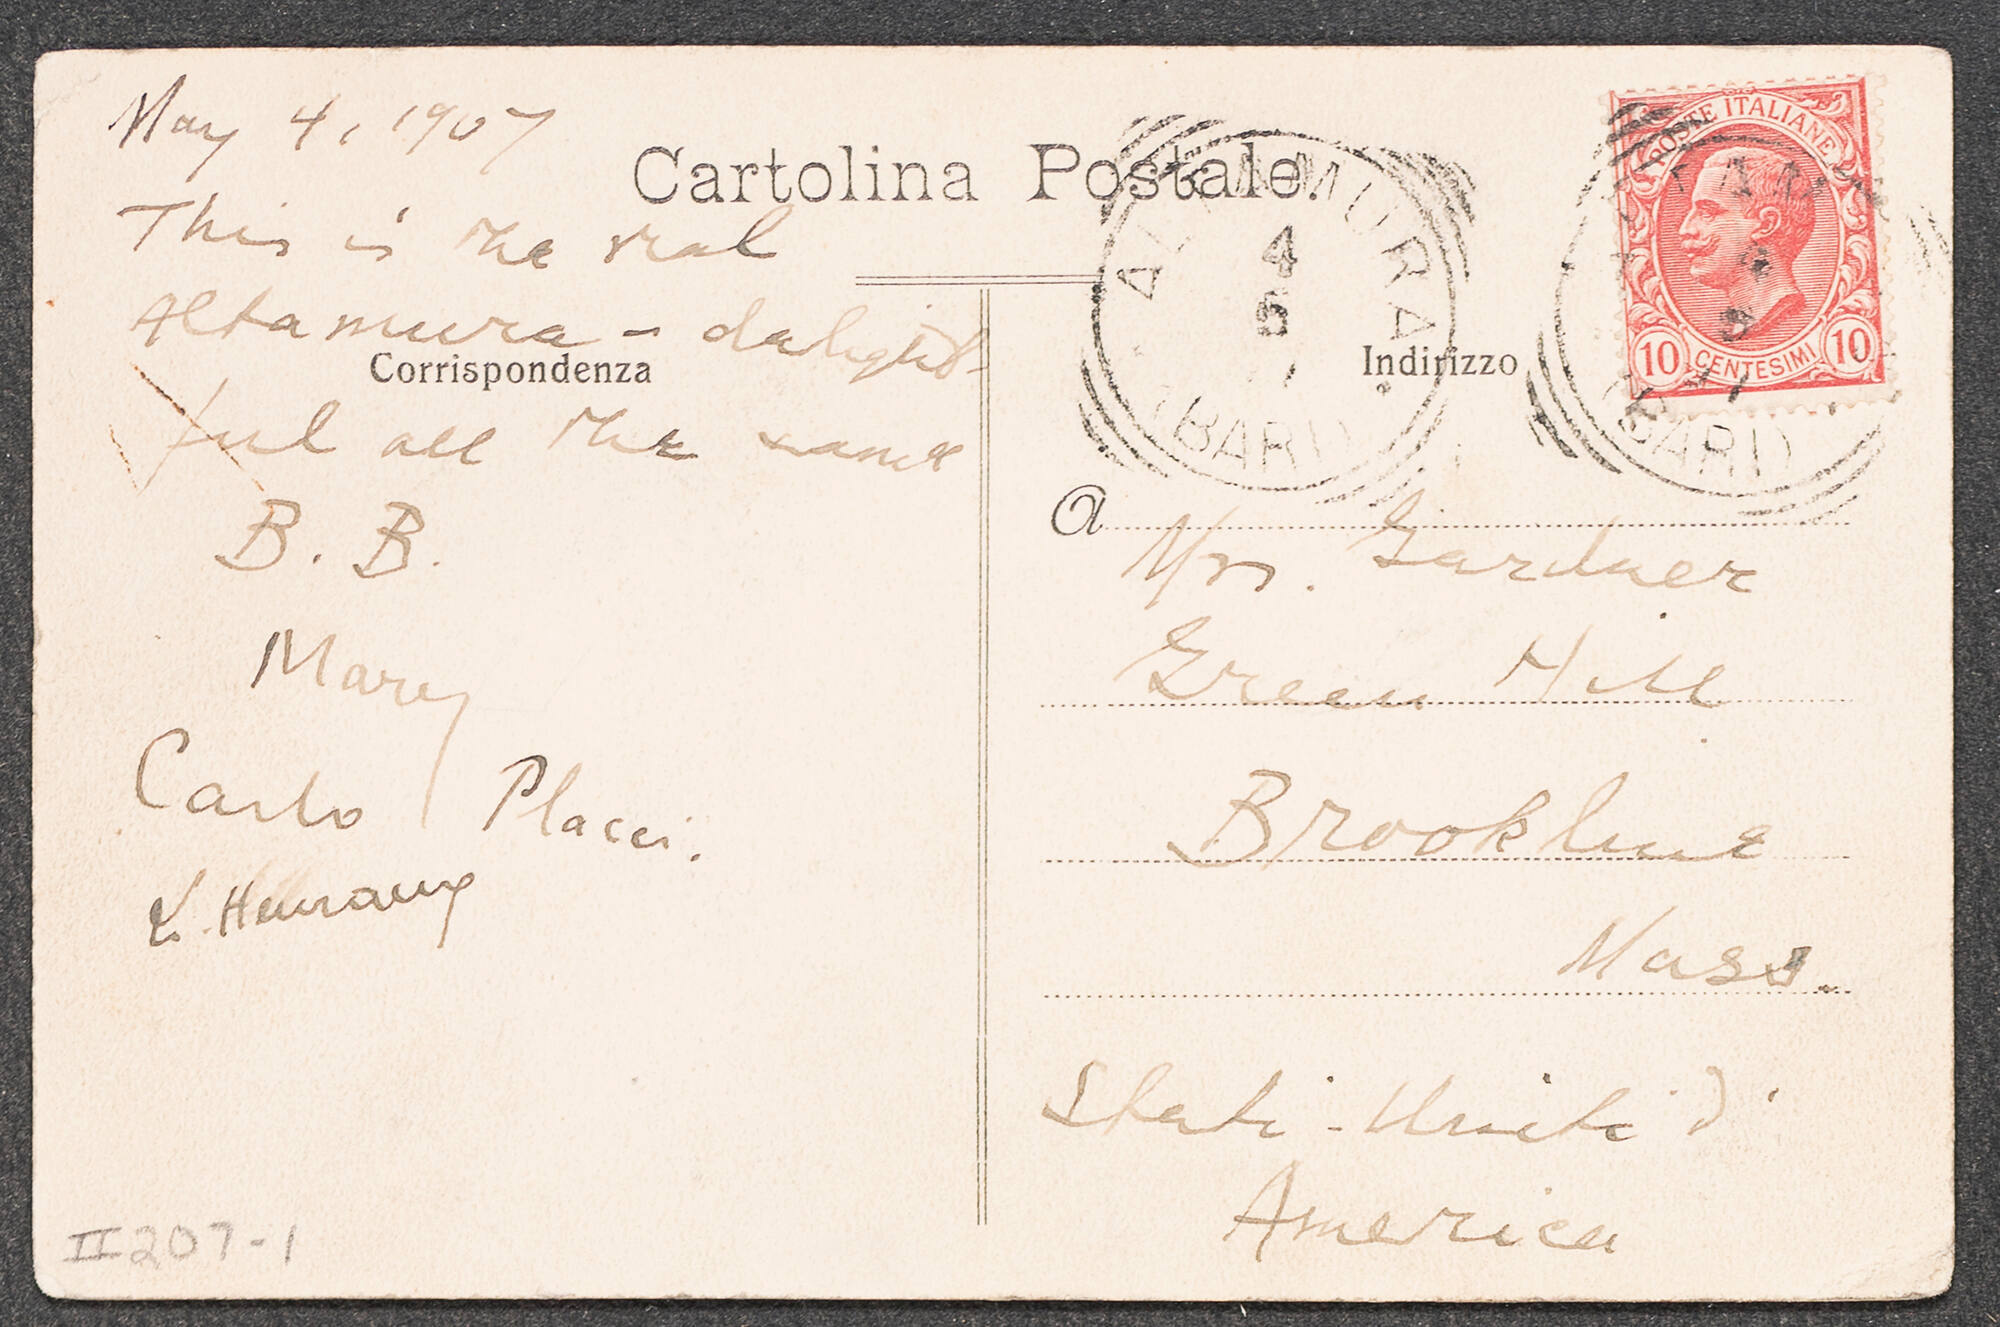 May 4, 1907
Cartolina Postale.
This is the real
Altamura – delight-
Corrispondenza
ful all the same
B. B.
Mary
Carlo Placci.
II 207-1
POSTE ITALIANE
10 CENTESIMI 10
ALTAMURA
4
5
(BARI)
ALTAMURA
4
5
(BARI)
Indirizzo
a
Mrs. Gardner
Green Hill
Brookline
Mass.
Stati-Uniti d'
America